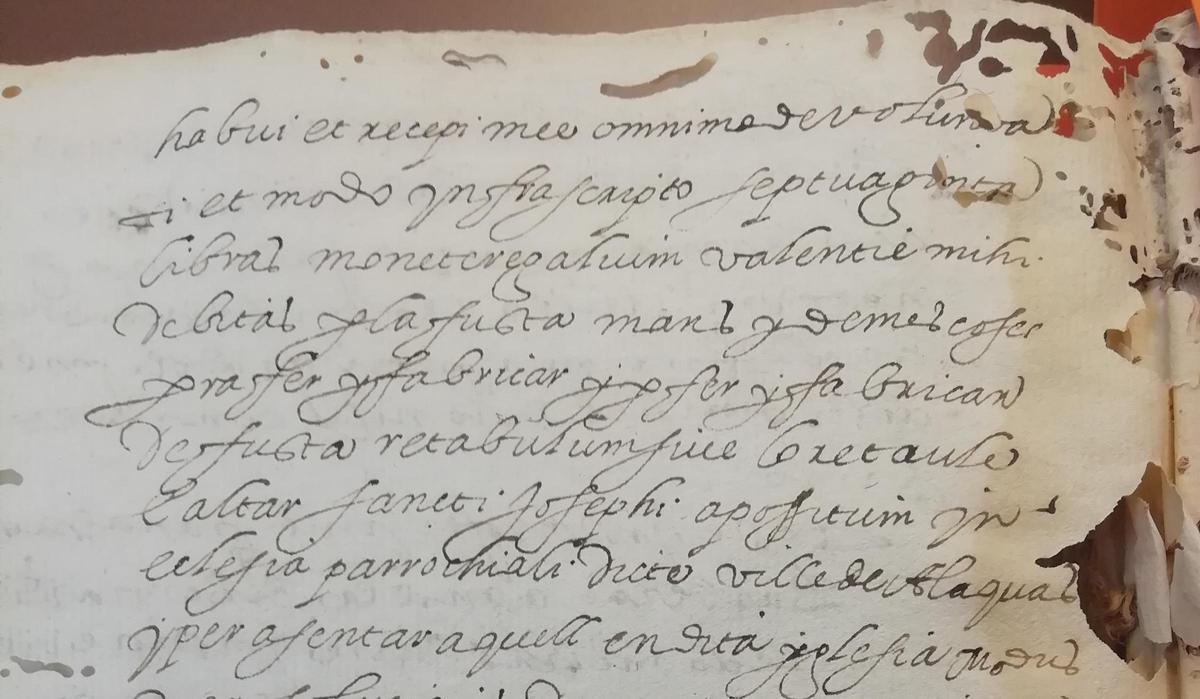 habui et recepi mee omnimode volunta
ti et modo ynfrascripto septuaginta
libras monete regaluim valentie mihi
debitas per la fusta mans y demes coses
pera fer y fabricar y per fer y fabricar
de fusta retabulum sive lo retaule
e altar sancti Josephi apossitum yn
eclesia parrochiali dicte ville de Alaquas
y per asentar aquell en dita yglesia modus